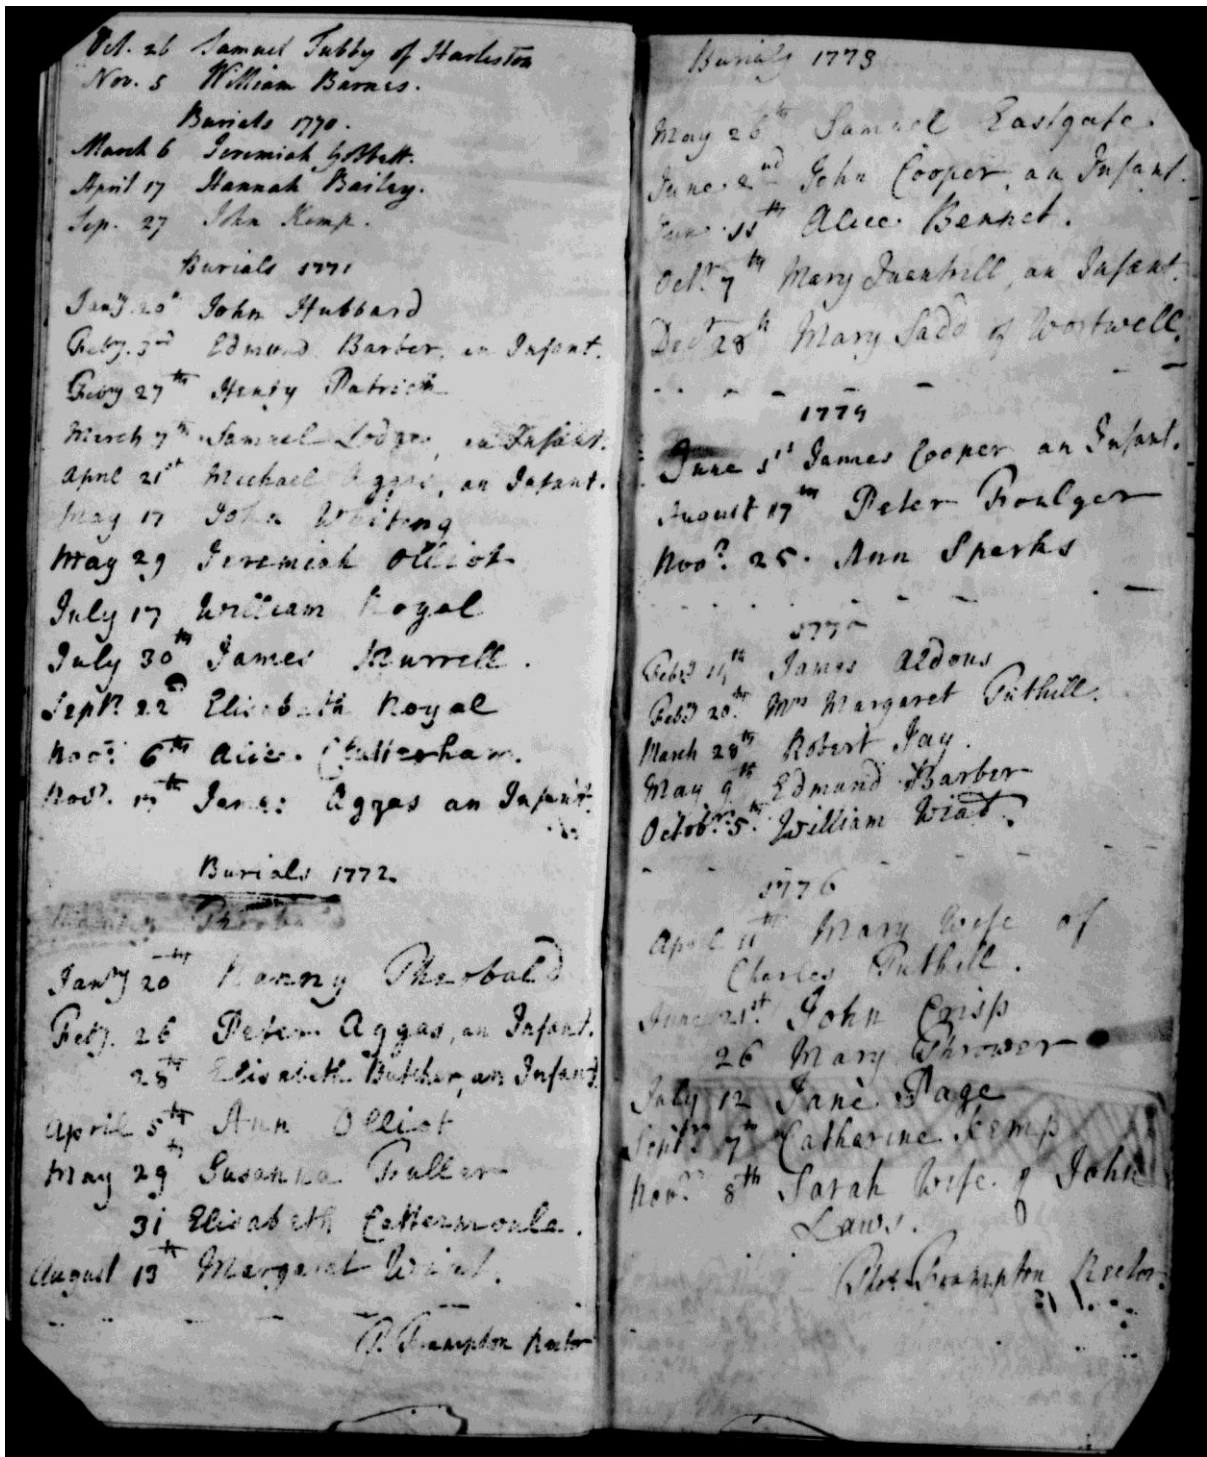 Oct. 26 Samuel Tubby of Harleston
Nov. 5 William Barnes.
Burials 1770.
March 6 Jeremiah
April 17 Hannah Bailey.
Sep. 27 John Kemp.
Burials 1771
Jany. 20th John Hubbard
Feby. 3rd Edmund Barber, an Infant.
Feby 27th Henry Patrick
March 7th Samuel Lodge, an Infant.
April 21st Michael Aggas, an Infant.
May 17 John Whiting
May 29 Jeremiah Olliot
July 17 William Royal
July 30th James Murrell.
Septr. 22d Elisabeth Royal
Novr. 6th Alice Chatterham.
Novr. 17th James Aggas an Infant.
Burials 1772.
Jany 20th Nanny Theobald
Feby. 26 Peter Aggas, an Infant.
28th Elisabeth Butcher, an Infant.
April 5th Ann Olliot
May 29th Susanna Fuller
31 Elisabeth Cattermoule.
August 13th Margaret Wiat.
P. Frampton Rector
Burials 1773
May 26th Samuel Eastgate.
June 2nd John Cooper, an Infant.
June 11th Alice Bennet.
Octr. 7th Mary an Infant.
Decr 28th Mary Sadd of Wortwell.
1774
June 1st James Cooper an Infant.
August 17th Peter Foulger
Novr. 25. Ann Sparks
1775
Feby 14th James Aldous
Feby 20th. Mrs Margaret Tuthill.
March 28th Robert Jay.
May 9th Edmund Barber
Octobr. 5th. William Wiat.
1776
April 11th Mary Wife of
Charles Tuthill.
June 21st. John Crisp
26 Mary Thrower
July 12 Jane Page
Septr 7th Catharine Kemp
Novr. 8th Sarah Wife of John
Laws.
Frampton Rector.